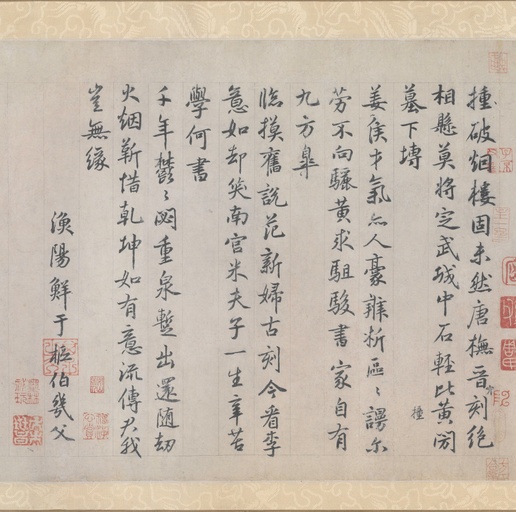 撞破烟樓固未然唐橅晉刻絶
相懸莫將定武城中石輕比黄閍
墓下塼
種
姜侯才氣亦人豪辨析區〻謾尓
勞不向驪黄求駔駿書家自有
九方臯
臨摸舊説范新婦古刻今看李
意如却笑南宫米夫子一生辛苦
學何書
千年鬱〻閟重泉蹔出還随劫
火烟靳惜乾坤如有意流傳尹我
豈無縁
漁陽鮮于樞伯幾父